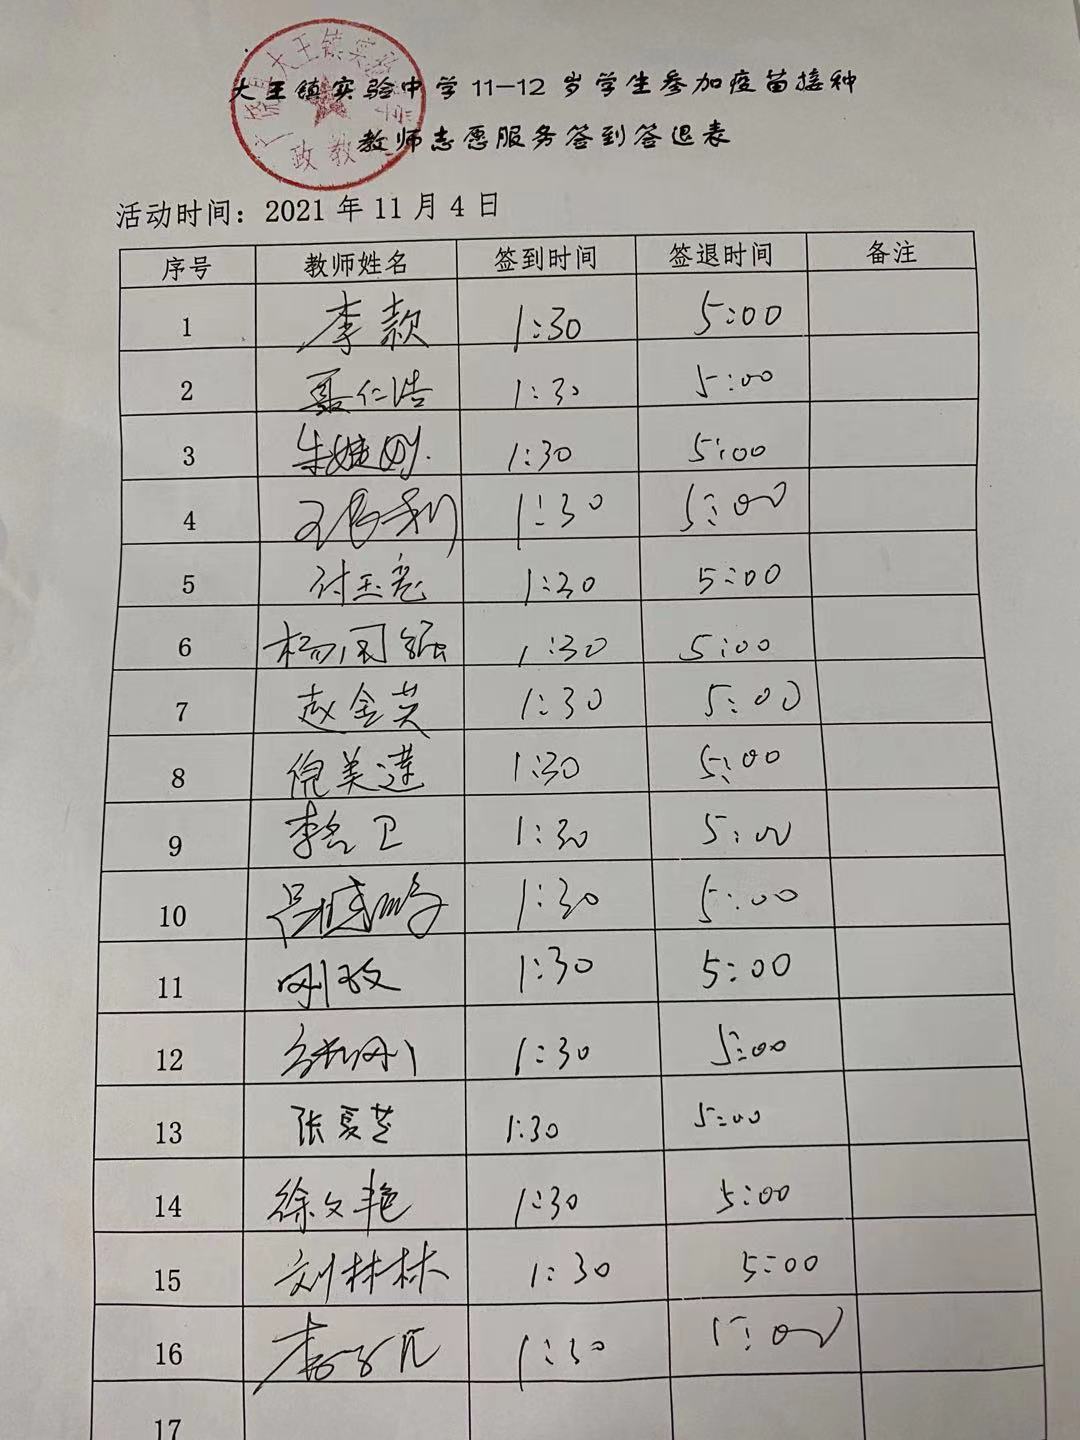 大王镇实验中学11-12岁学生参加疫苗接种
教师志愿服务签到签退表
政教
活动时间：2021年11月4日
序号 教师姓名 签到时间 签退时间 备注
1 李款 1:30 5:00
2 聂仁浩 1:30 5:00
3 1:30 5:00
4 1:30 5:00
5 付玉亮 1:30 5:00
6 杨国强 1:30 5:00
7 赵金英 1:30 5:00
8 倪美莲 1:30 5:00
9 卫 1:30 5:00
10 1:30 5:00
11 1:30 5:00
12 1:30 5:00
13 张夏芝 1:30 5:00
14 徐文艳 1:30 5:00
15 刘林林 1:30 5:00
16 1:30 5:00
17